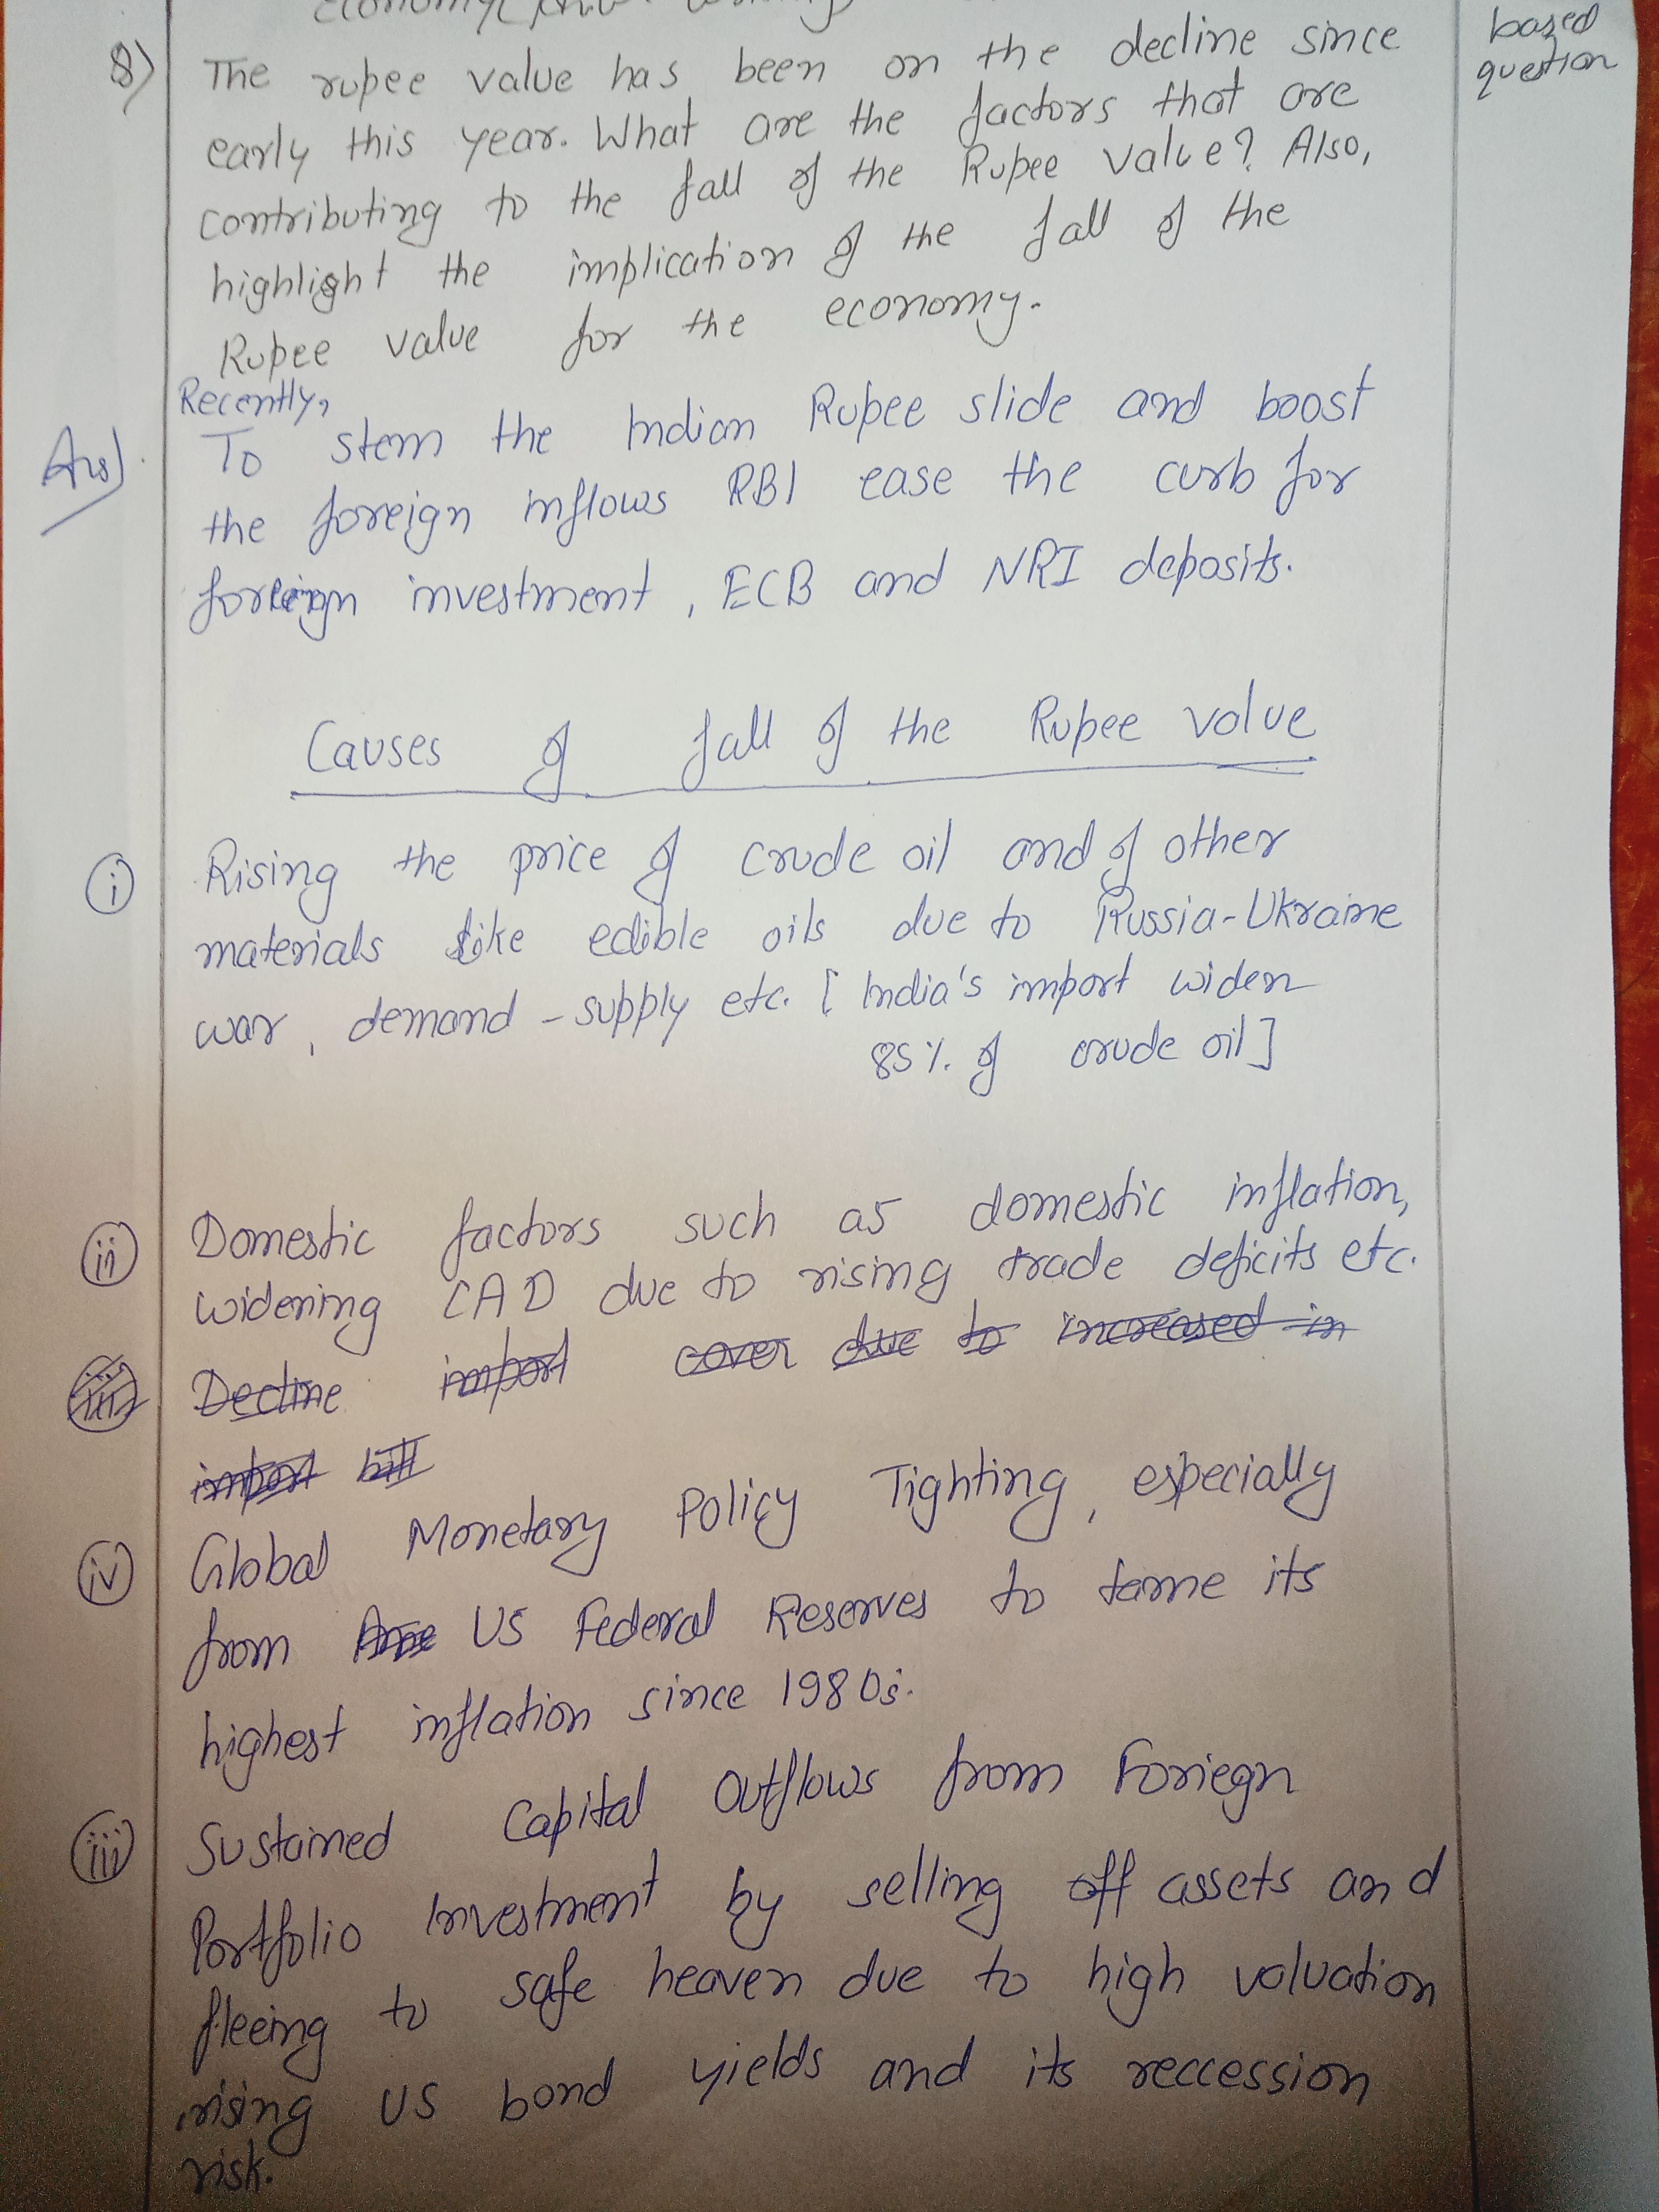 based
question
8) The rupee value has been on the decline since
early this year. What are the factors that are
contributing to the fall of the Rupee value? Also,
highlight the implication of the fall of the
Rupee value for the economy.
Recently,
Ans) To stem the Indian Rupee slide and boost
the foreign inflows RBI ease the curb for
foreign investment, ECB and NRI deposits.
Causes of fall of the Rupee value
(i) Rising the price of crude oil and of other
materials like edible oils due to Russia-Ukraine
war, demand - supply etc. [India's import widen
85% of crude oil]
(ii) Domestic factors such as domestic inflation,
widening CAD due to rising trade deficits etc.
(iii) Decline import cover due to increased in
import bill
(iv) Global Monetary Policy Tighting, especially
from US Federal Reserves to tame its
highest inflation since 1980s.
(iii) Sustained Capital Outflows from Foriegn
Portfolio Investment by selling off assets and
fleeing to safe heaven due to high valuation
rising US bond yields and its reccession
risk.